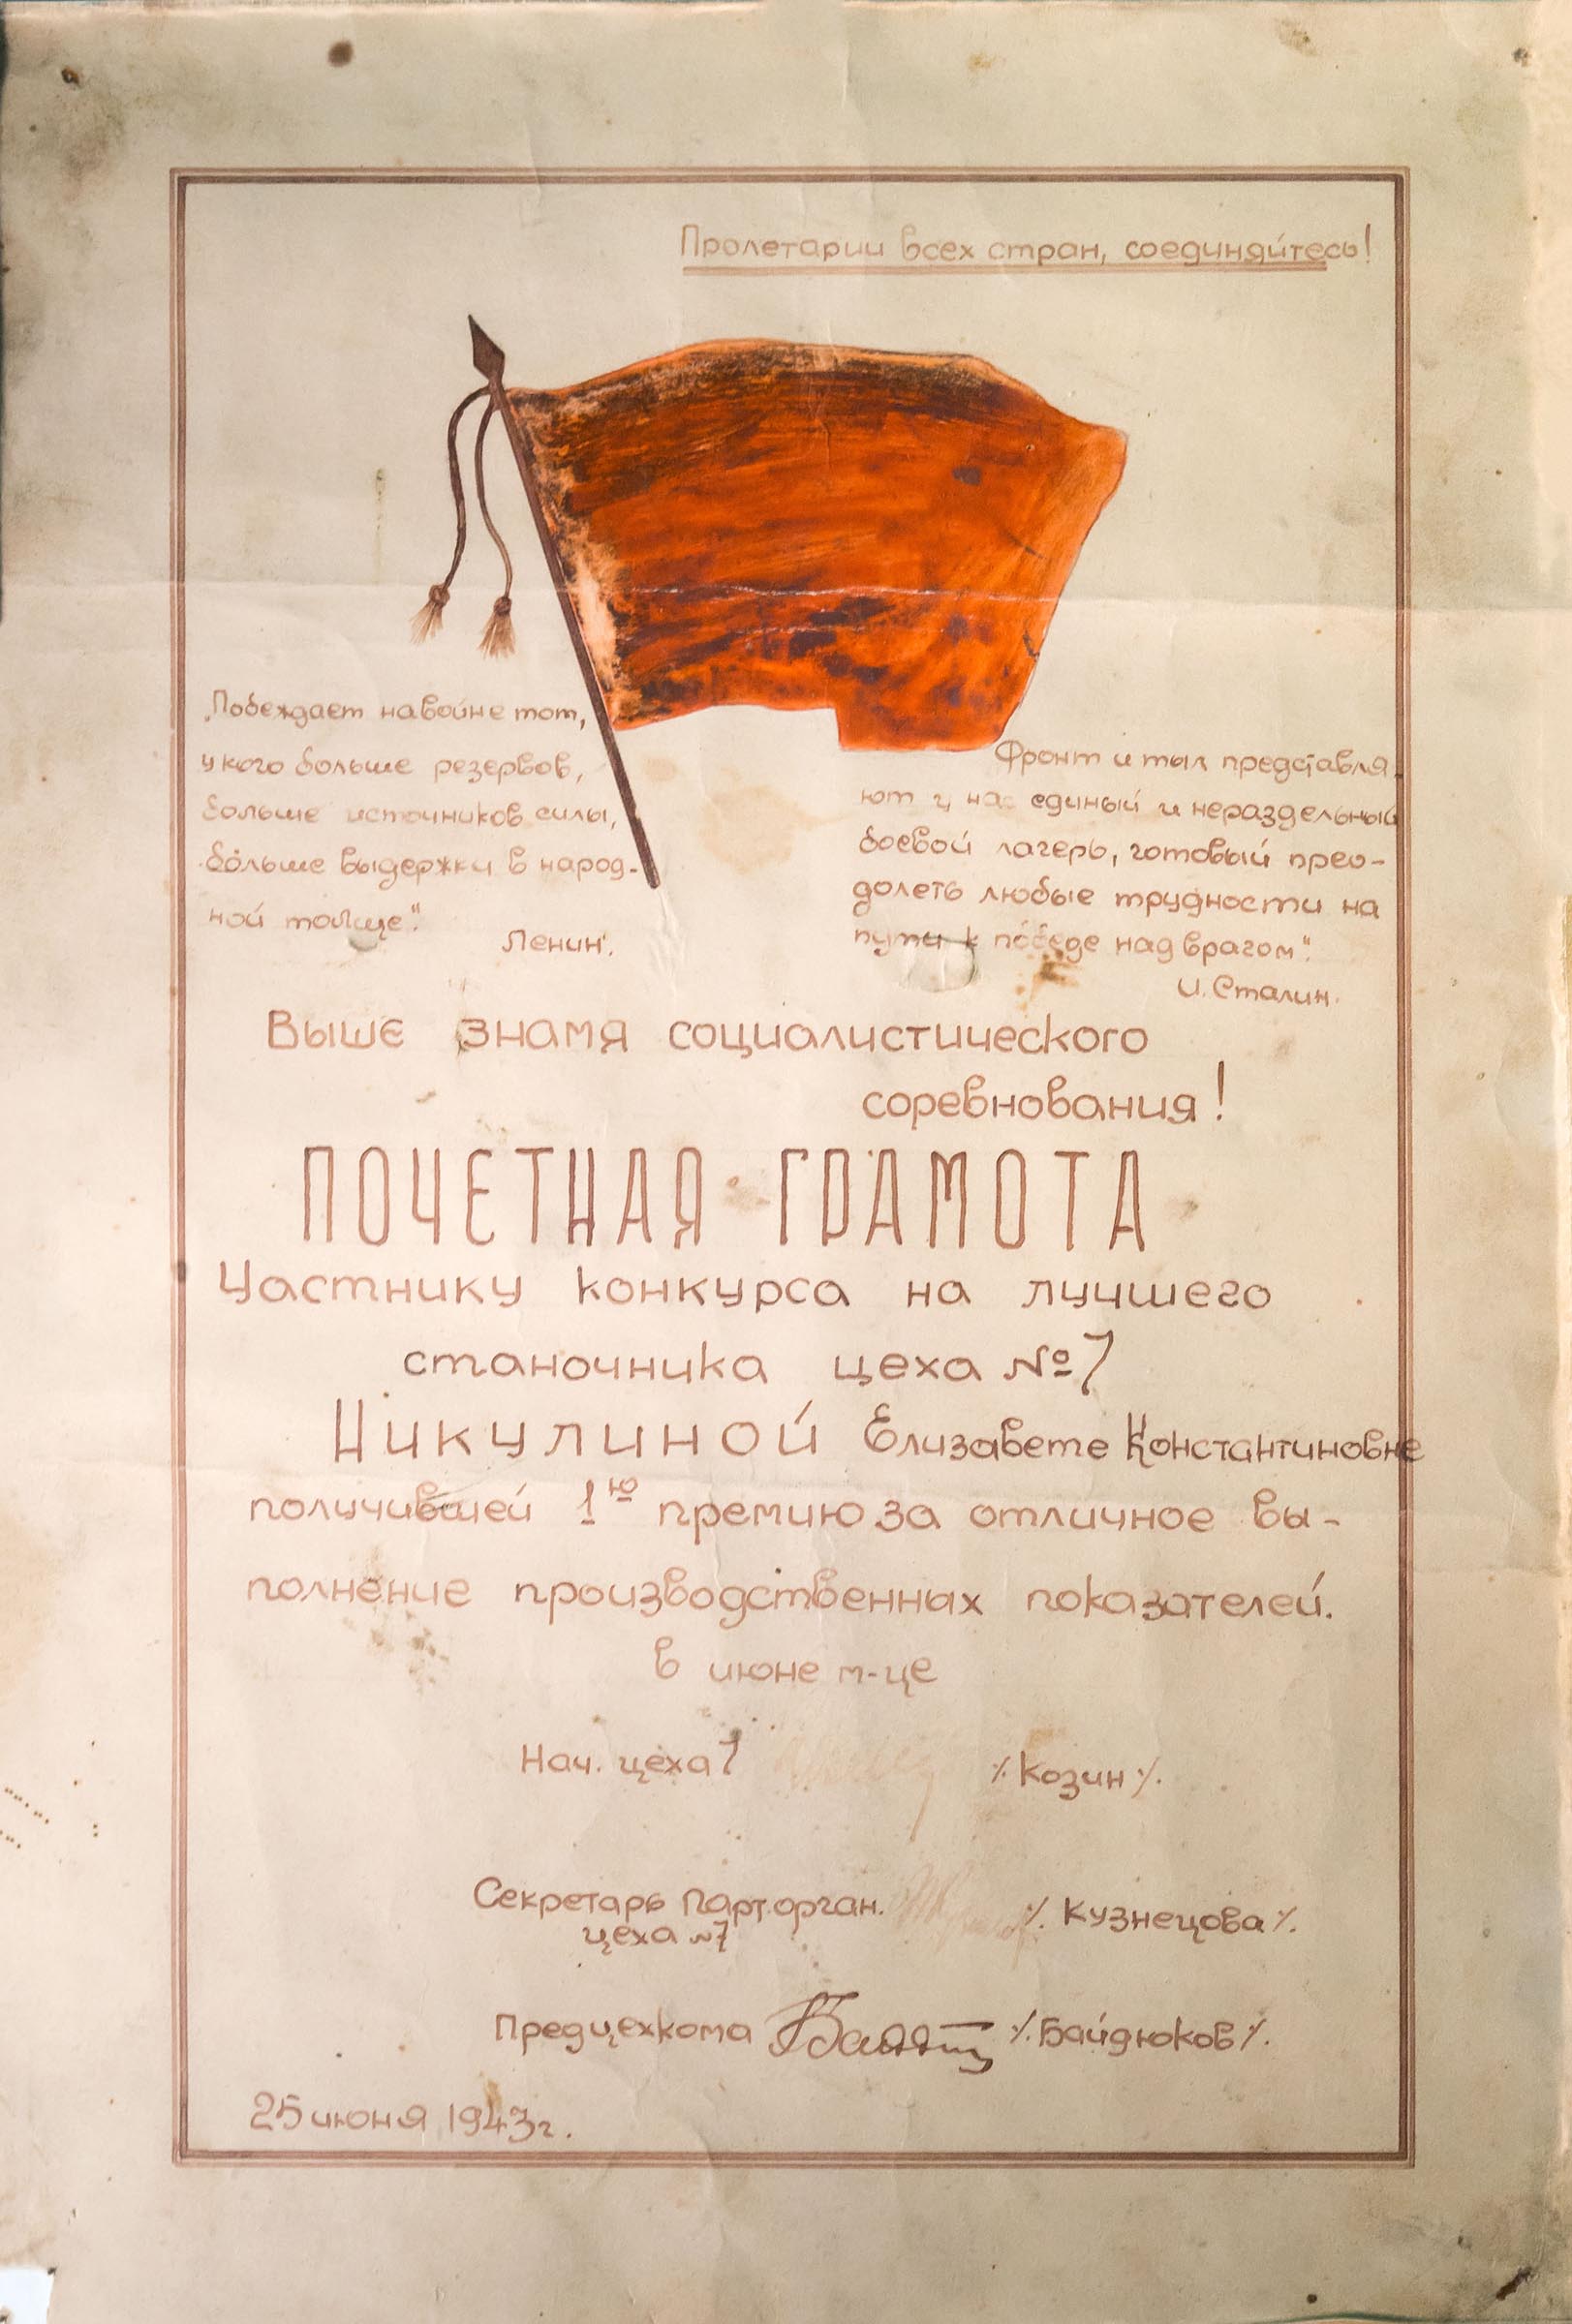 Пролетарии всех стран, соединяйтесь!
„Побеждает на войне тот,
у кого больше резервов,
больше источников силы,
больше выдержки в народ-
ной толще".
Ленин.
Фронт и тыл представля-
ют у нас единый и нераздельный
боевой лагерь, готовый прео-
долеть любые трудности на
пути к победе над врагом".
И. Сталин.
Выше знамя социалистического
соревнования!
ПОЧЕТНАЯ ГРАМОТА
Участнику конкурса на лучшего
станочника цеха №7
Никулиной Елизавете Константиновне
получившей 1ю премию за отличное вы-
полнение производственных показателей.
в июне м-це
Нач. цеха 7 ٪ Козин ٪.
Секретарь Парт.орган. ٪. Кузнецова ٪.
цеха №7
Предцехкома ٪. Байдюков ٪.
25 июня 1943г.